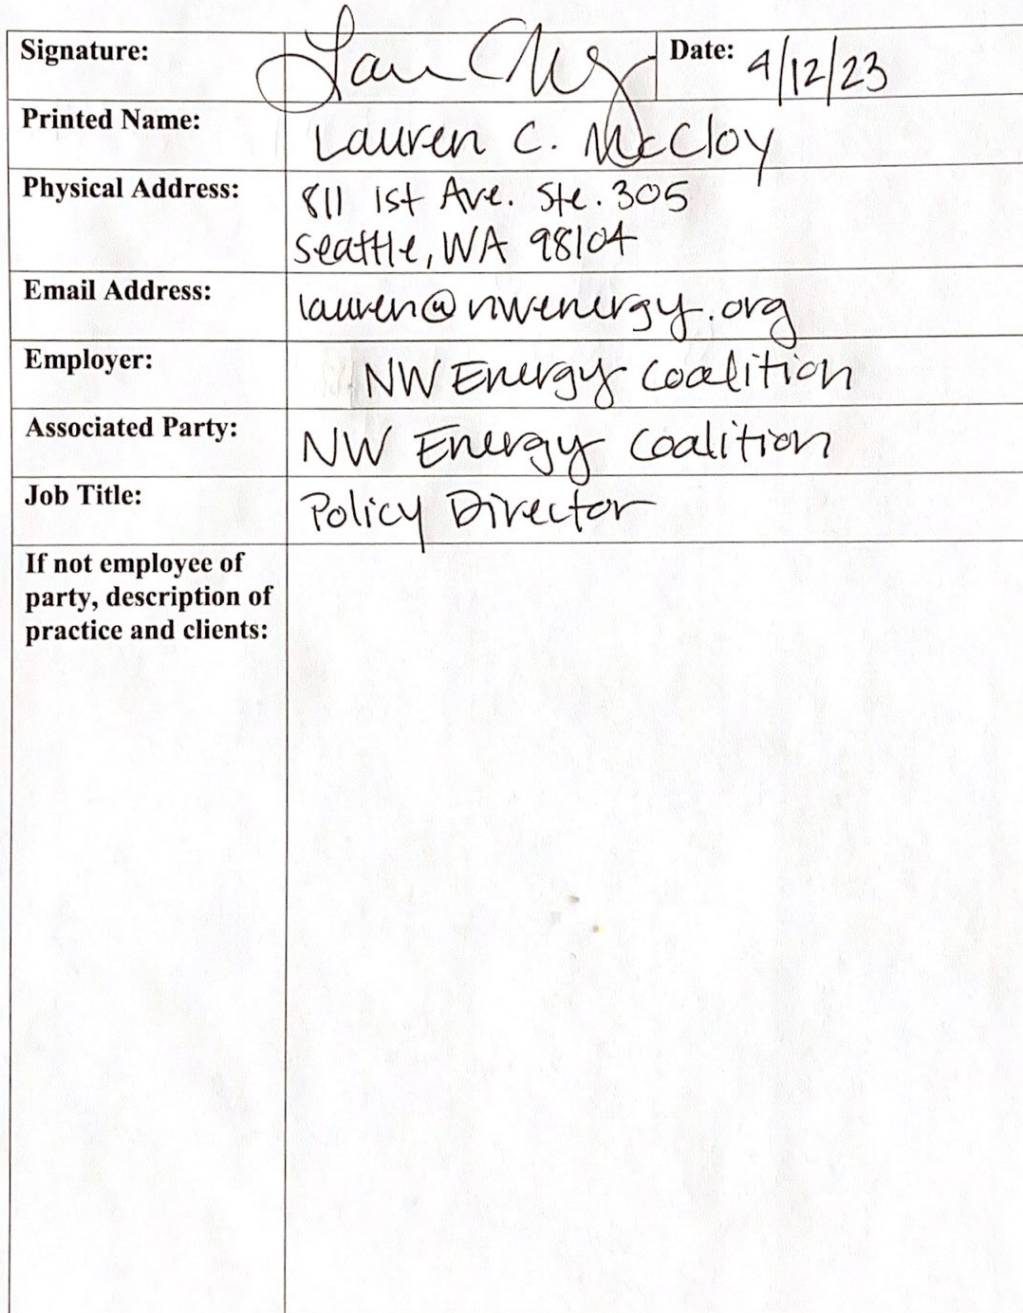 Signature: Date: 4/12/23
Printed Name: Lauren C. McCloy
Physical Address: 811 1st Ave. Ste. 305
Seattle, WA 98104
Email Address: lauren@nwenergy.org
Employer: NW Energy Coalition
Associated Party: NW Energy Coalition
Job Title: Policy Director
If not employee of
party, description of
practice and clients: